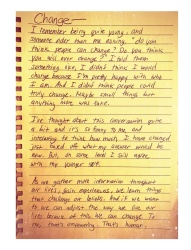 Change—
I remember being quite young, and
someone older than me asking, "do you
think people can change? Do you think
you will ever change?" I told them
something like, I didn't think I would
change because I'm pretty happy with who
I am. And I didn't think people could
truly change. Maybe small things but
anything more was rare.
I've thought about this conversation quite
a bit and it's so funny to me and
interesting to think how much I have changed
just based off what my answer would be
now. But, on some level I still agree
with my younger self.
As we gather more information throughout
our lives, gain experiences, we learn things
that challenge our beliefs. And if we want
to we can adjust the way we live our
lives because of this. We can change. To
me, that's